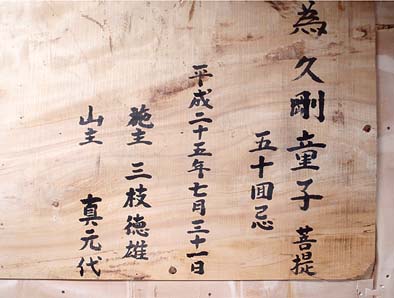 為久剛童子菩提
五十回忌
平成二十五年七月三十一日
施主 三枝徳雄
山主 真元代